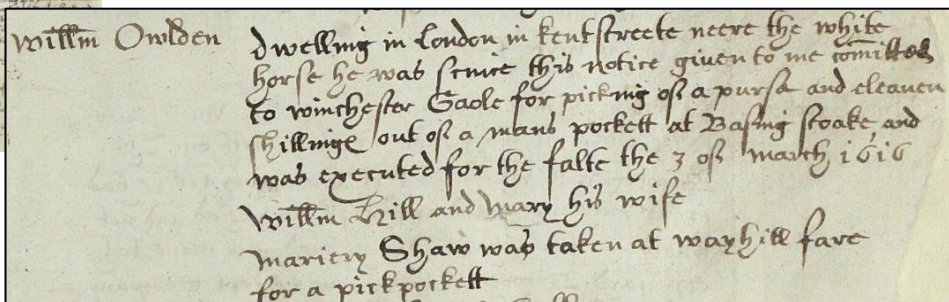 Willm Owlden dwelling in London in kentstreete neere the white
horse he was since this notice given to me comitted
to winchester Gaole for picking of a purse and eleaven
shillinge out of a mans pockett at Basing stoake and
was executed for the falte the 3 of march 1616
Willm Hill and Mary his wife
Mariery Shaw was taken at wayhill fare
for a pickpockett